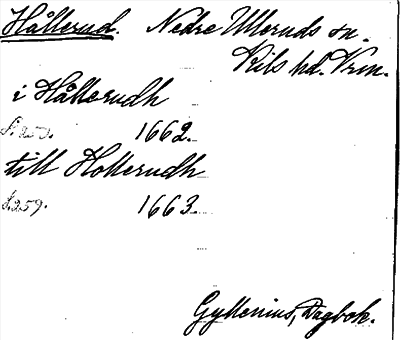 Hållerud. Nedre Ulleruds sn.
Kils hd. Vrm.
i Hållerudh
1662.
till Hollerudh
s. 259. 1663.
Gyllenius, Dagbok.